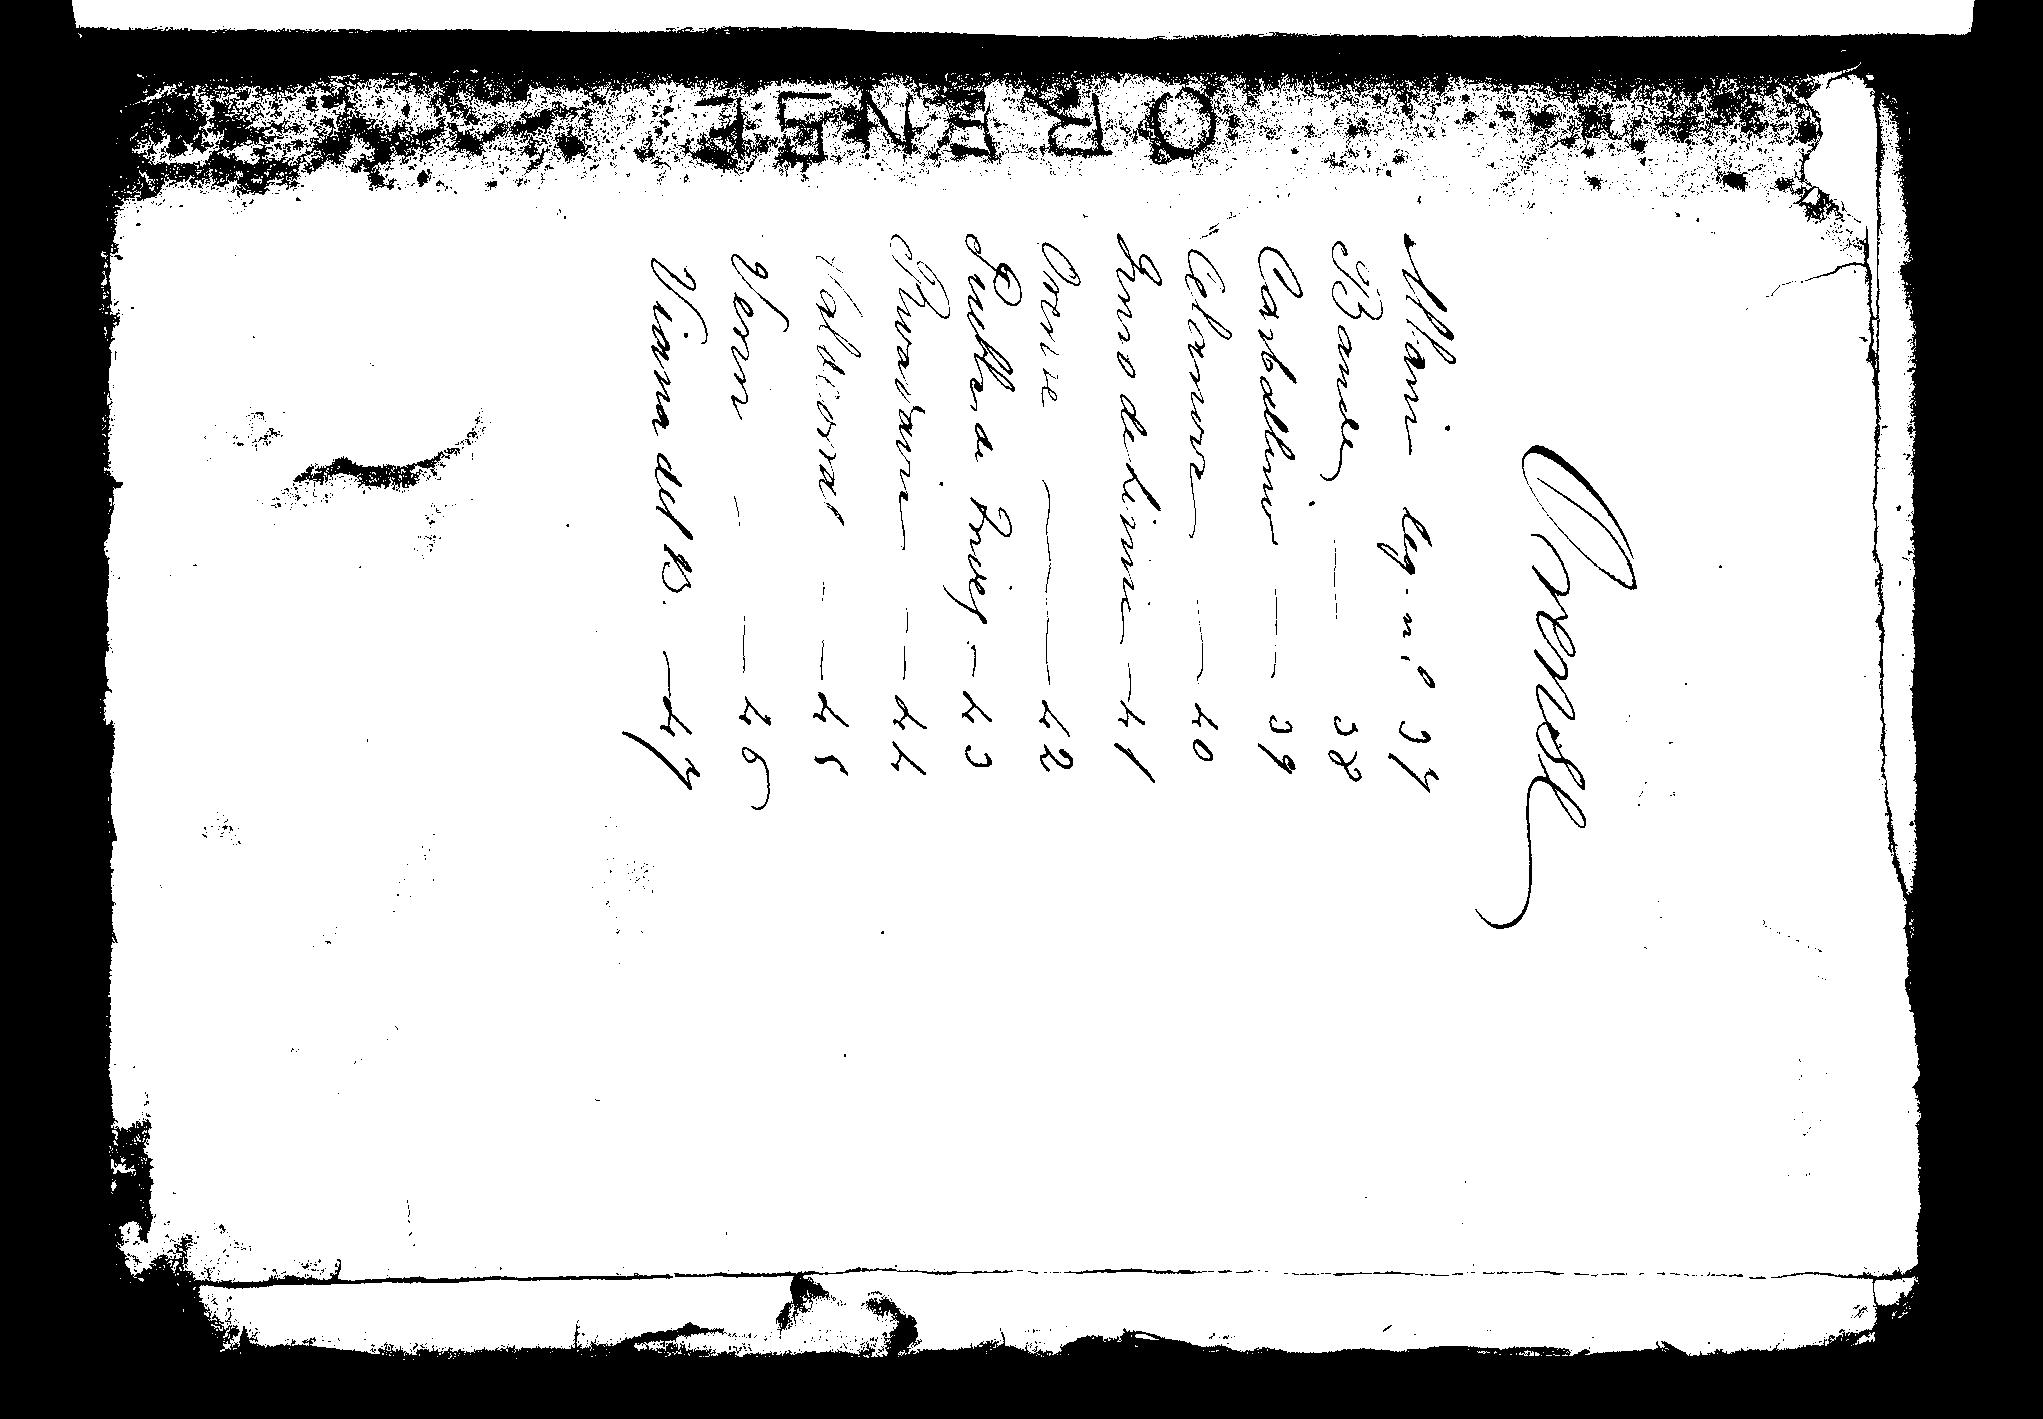 ORENSE
Orense
Allariz leg. n.º 37
Bande — 38
Carballino — 39
Celanova — 40
Ginzo de Limia — 41
Orense — 42
Puebla de Trives — 43
Rivadavia — 44
Valdeorras — 45
Verin — 46
Viana del B. — 47